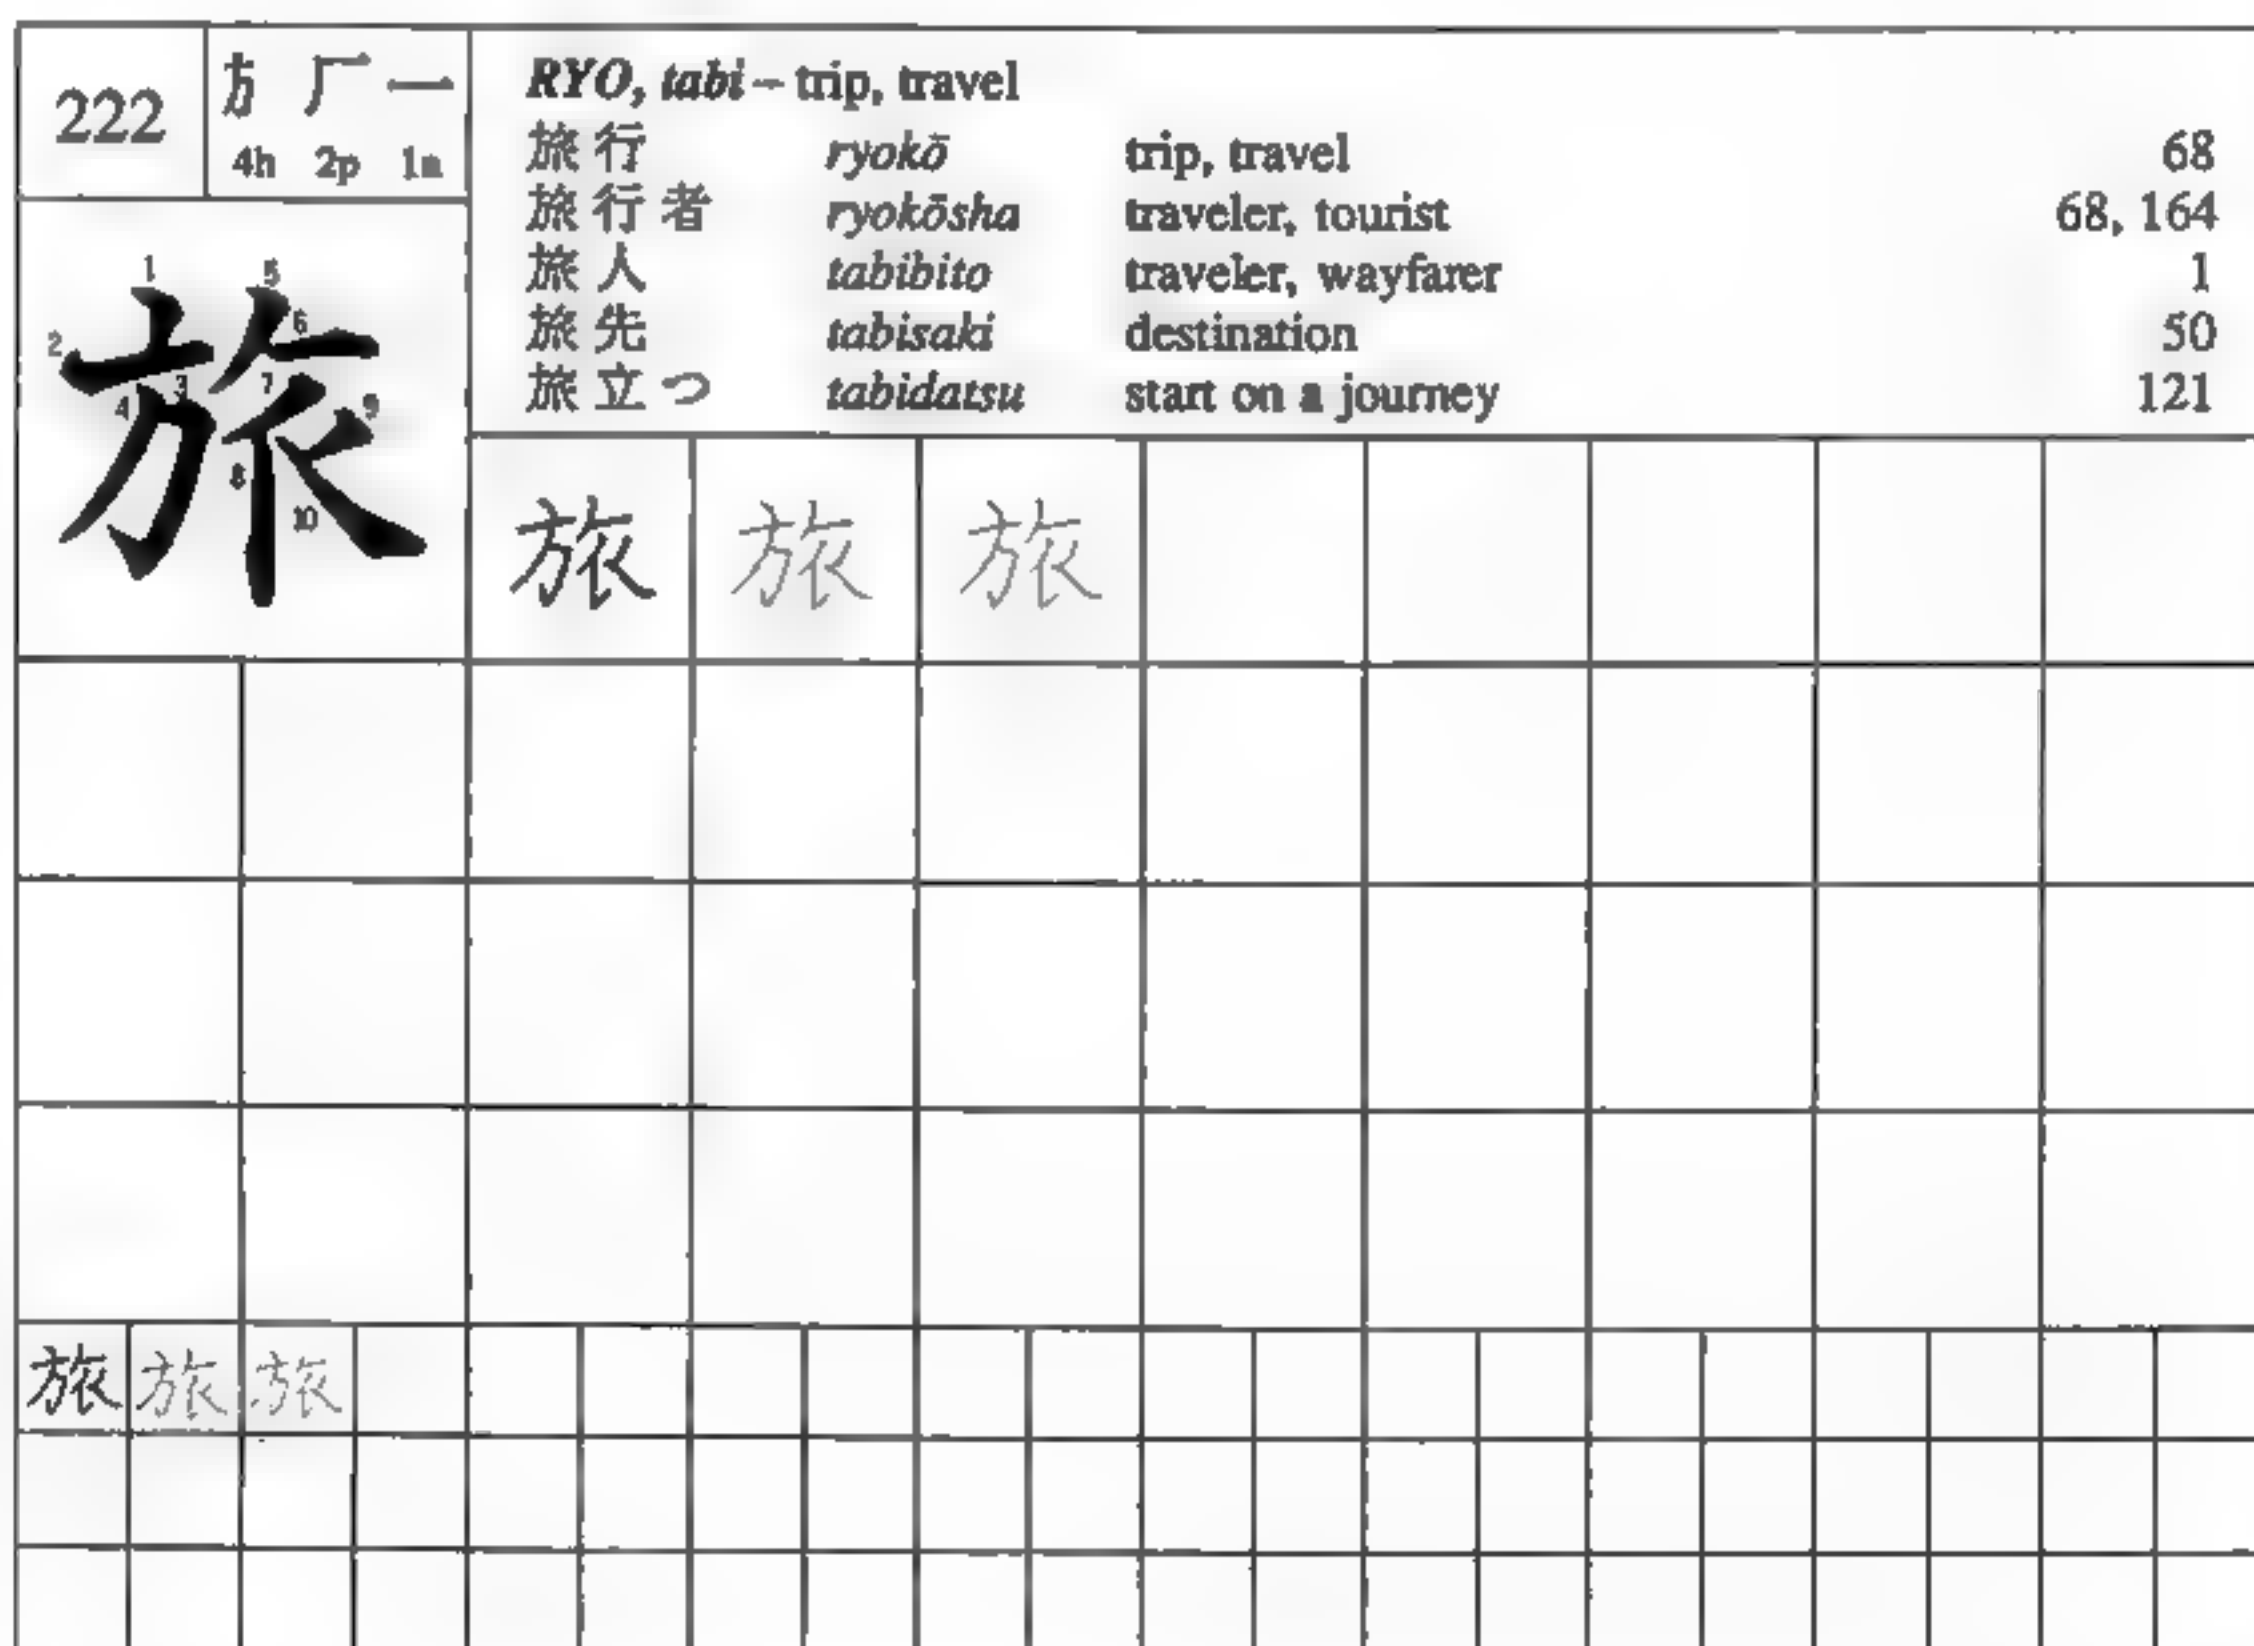 222
方 厂 一
4h 2p 1a
RYO, tabi – trip, travel
旅行 ryokō trip, travel 68
旅行者 ryokōsha traveler, tourist 68, 164
旅人 tabibito traveler, wayfarer 1
旅先 tabisaki destination 50
旅立つ tabidatsu start on a journey 121
1 5
2 6
4 3 7 9
8
10
旅
旅 旅 旅
旅 旅 旅